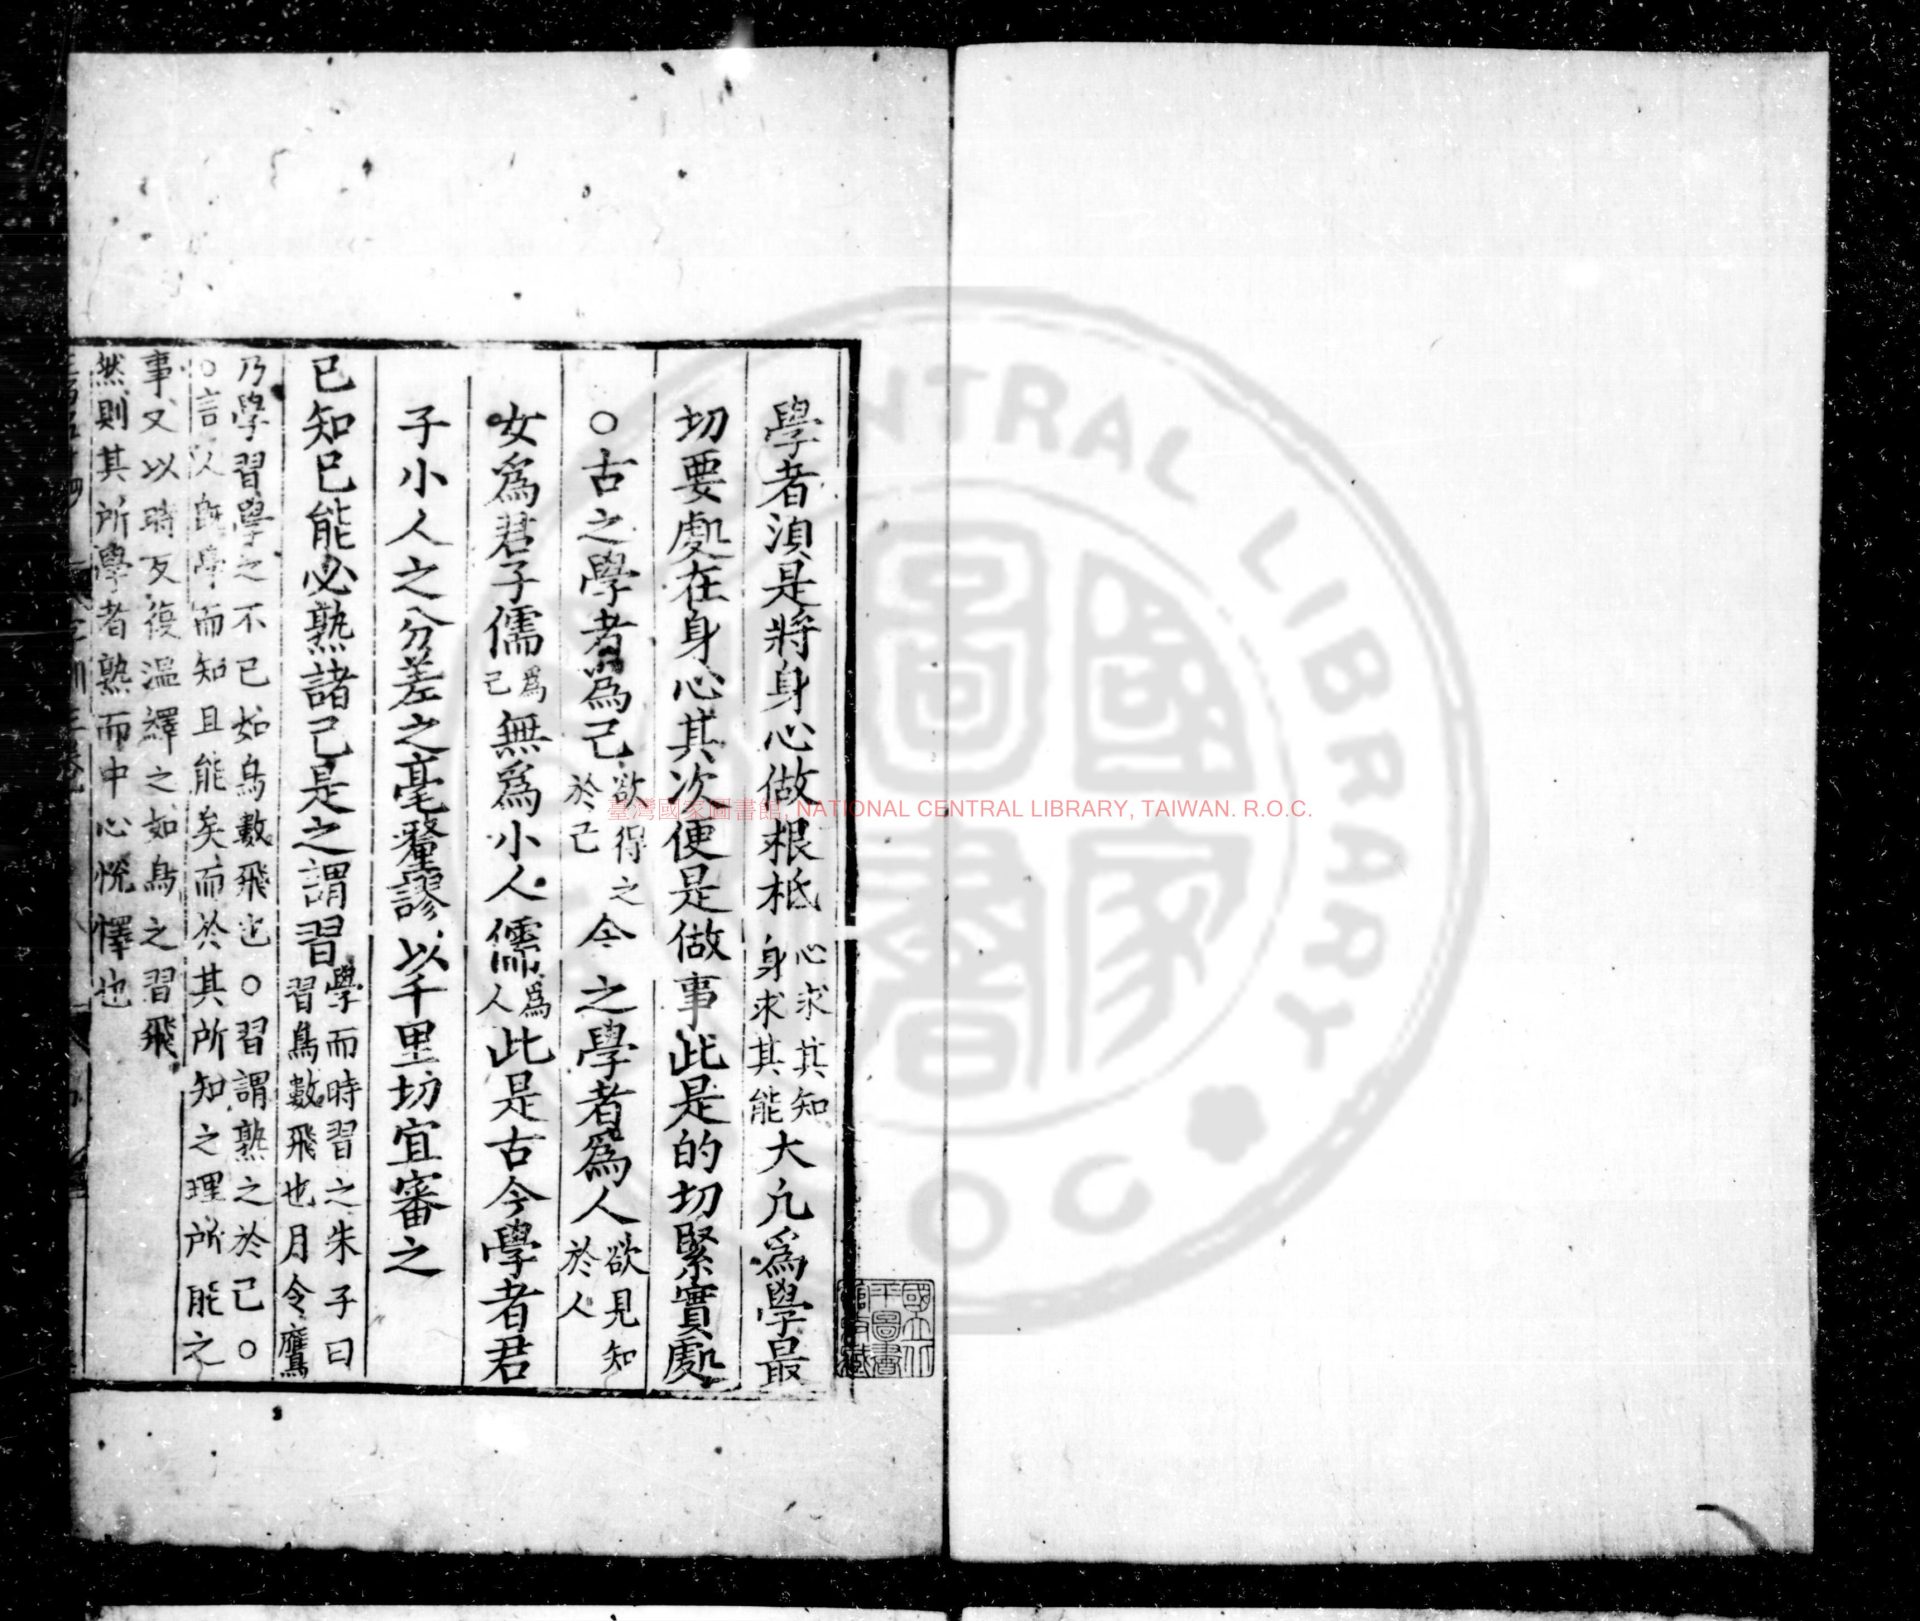 學者湏是將身心做根柢心求其知身求其能大凡爲學最
切要處在身心其次便是做事此是的切緊實處
○古之學者爲己欲得之於己今之學者爲人欲見知於人
女爲君子儒爲己無爲小人儒爲人此是古今學者君
子小人之分差之毫釐謬以千里切宜審之
已知已能必熟諸己是之謂習學而時習之朱子曰習鳥數飛也月令鷹
乃學習學之不已如鳥數飛也○習謂熟之於己○
○言人既學而知且能矣而於其所知之理所能之
事又以時反復溫繹之如鳥之習飛
然則其所學者熟而中心悅懌也
國立北平圖書館收藏
臺灣國家圖書館, NATIONAL CENTRAL LIBRARY, TAIWAN. R.O.C.
NTRAL LIBRARY
國家圖書